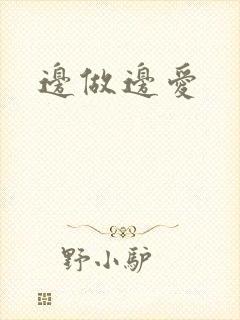 邊做邊愛
野小驴